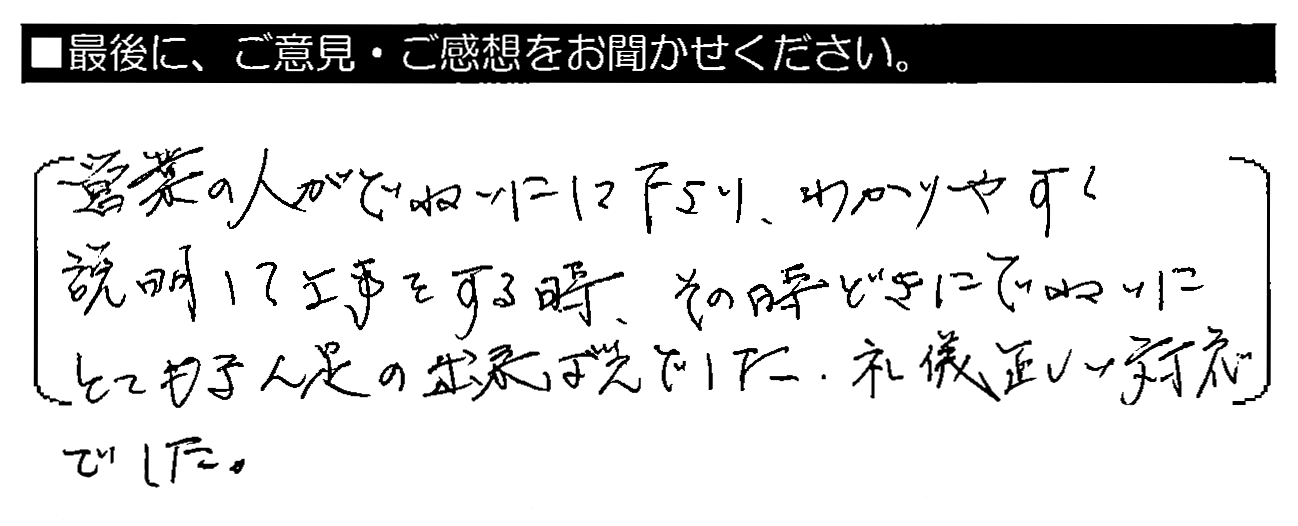 ■最後に、ご意見・ご感想をお聞かせください。
営業の人がでいねいにして下さり、わかりやすく
説明して工事をする時、その時どきにでいねいに
とても満足の出来ばえでした。礼儀正しい対応
でした。